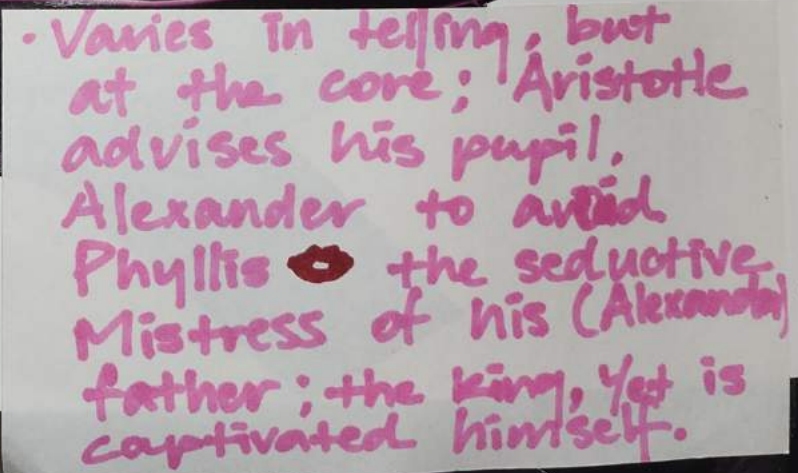 · Varies in telling, but
at the core; Aristotle
advises his pupil,
Alexander to avoid
Phyllis the seductive
Mistress of his (Alexander)
father; the king, Yet is
captivated himself.